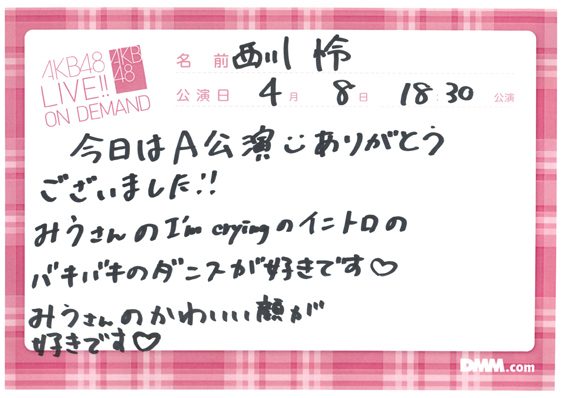 AKB48
LIVE!!
ON DEMAND
AKB
48
名 前 西川 怜
公演日 4月 8日 18:30 公演
今日はA公演ありがとう
ございました!!
みうさんのI'm cryingのイントロの
バキバキのダンスが好きです♡
みうさんのかわいい顔が
好きです♡
DMM.com